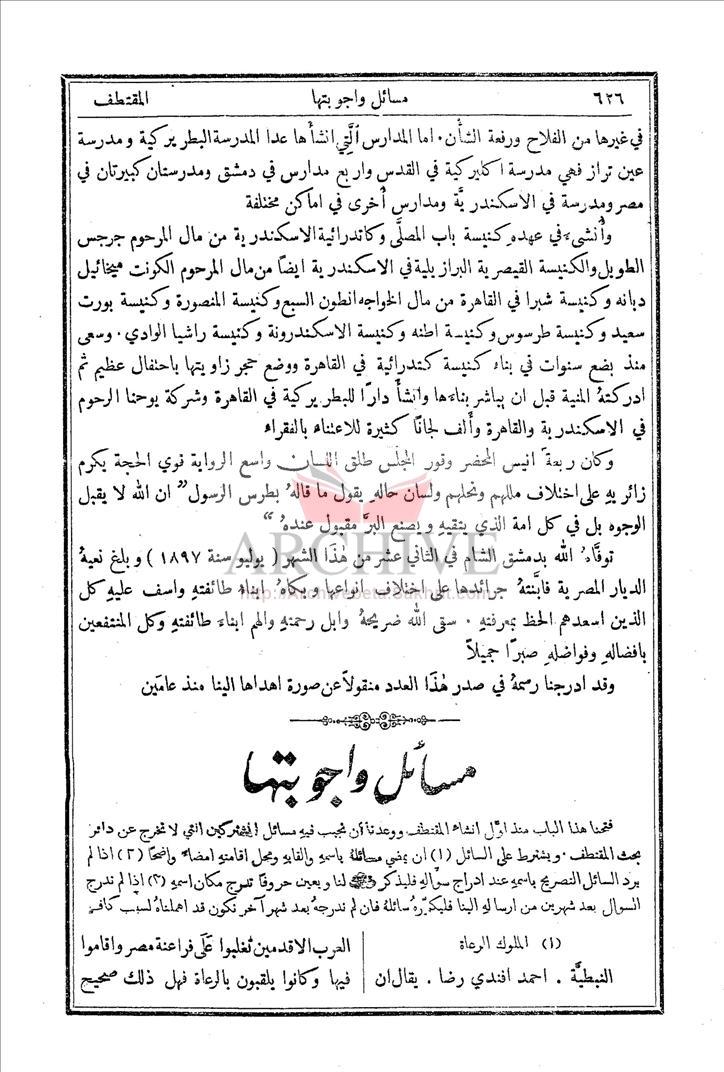 ٦٢٦ مسائل واجوبتها المقتطف
في غيرها من الفلاح ورفعة الشأن. اما المدارس ٱلَّتِي انشأها عدا المدرسة البطريركية ومدرسة
عين تراز فهي مدرسة اكليركية في القدس واربع مدارس في دمشق ومدرستان كبيرتان في
مصر ومدرسة في الاسكندريَّة ومدارس أُخرى في اماكن مختلفة
وأُنشئ في عهده كنيسة باب المصلَّى وكاتدرائية الاسكندرية من مال المرحوم جرجس
الطويل والكنيسة القيصرية البرازيلية في الاسكندرية ايضًا من مال المرحوم الكونت ميخائيل
دبانه وكنيسة شبرا في القاهرة من مال الخواجه انطون السبع وكنيسة المنصورة وكنيسة بورت
سعيد وكنيسة طرسوس وكنيسة اطنه وكنيسة الاسكندرونة وكنيسة راشيا الوادي. وسعى
منذ بضع سنوات في بناء كنيسة كتدرائية في القاهرة ووضع حجر زاويتها باحتفال عظيم ثم
ادركتهُ المنية قبل ان يباشر بناءها وانشأ دارًا للبطريركية في القاهرة وشركة يوحنا الرحوم
في الاسكندرية والقاهرة وألف لجانًا كثيرة للاعتناء بالفقراء
وكان ربعة انيس المحضر وقور المجلس طلق اللسان واسع الرواية قوي الحجة يكرم
زائريهِ على اختلاف مللهم ونحلهم ولسان حاله يقول ما قالهُ بطرس الرسول " ان الله لا يقبل
الوجوه بل في كل امة الذي يتقيهِ ويصنع البرَّ مقبول عندهُ "
ARCHIVE
توفَّاهُ الله بدمشق الشام في الثاني عشر من هٰذَا الشهر ( يوليو سنة ١٨٩٧ ) وبلغ نعيهُ
http://Archivebeta.Sakhrit.com
الديار المصرية فابَّنتهُ جرائدها على اختلاف انواعها وبكاهُ ابناءُ طائفتهِ واسف عليهِ كل
الذين اسعدهم الحظ بمعرفتهِ. سقى الله ضريحهُ وابل رحمتهِ والهم ابناءَ طائفتهِ وكل المنتفعين
بافضالهِ وفواضلهِ صبرًا جميلًا
وقد ادرجنا رسمهُ في صدر هٰذَا العدد منقولًا عن صورة اهداها الينا منذ عامَين
مسائل واجوبتها
فتحنا هذا الباب منذ اوَّل انشاء المقتطف ووعدنا أن نجيب فيهِ مسائل المشتركين التي لا تخرج عن دائرة
بحث المقتطف. ويشترط على السائل (١) ان يمضي مسائلهُ باسمهِ والقابهِ ومحل اقامتهِ امضاءً واضحًا (٢) اذا لم
يرد السائل التصريح باسمهِ عند ادراج سؤالهِ فليذكر لنا ويعين حروفًا تدرج مكان اسمهِ (٣) اذا لم تدرج
السوال بعد شهرين من ارسالهِ الينا فليكرّرهُ سائلهُ فان لم ندرجهُ بعد شهر آخر نكون قد اهملناهُ لسبب كافٍ
(١) الملوك الرعاة
النبطيَّة. احمد افندي رضا. يقال ان
العرب الاقدمين تغلبوا عَلَى فراعنة مصر واقاموا
فيها وكانوا يلقبون بالرعاة فهل ذلك صحيح